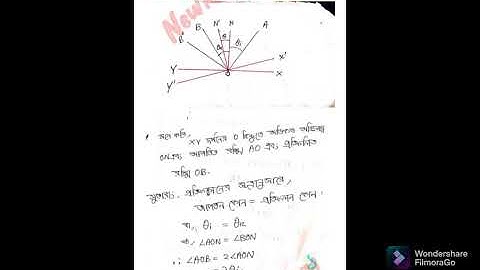 B
N'
N
A
B'
θ
θi
X'
Y
O
X
Y'
মনে করি,
XY দর্পনের O বিন্দুতে অভিলম্ব
ON এবং আপতিত রশ্মি AO এবং প্রতিফলিত
রশ্মি OB.
সুতরাং, প্রতিফলনের সূত্রানুসারে,
আপতন কোন = প্রতিফলন কোন
বা, θi = θr
বা, ∠AON = ∠BON
∴ ∠AOB = 2∠AON
Wondershare
FilmoraGo